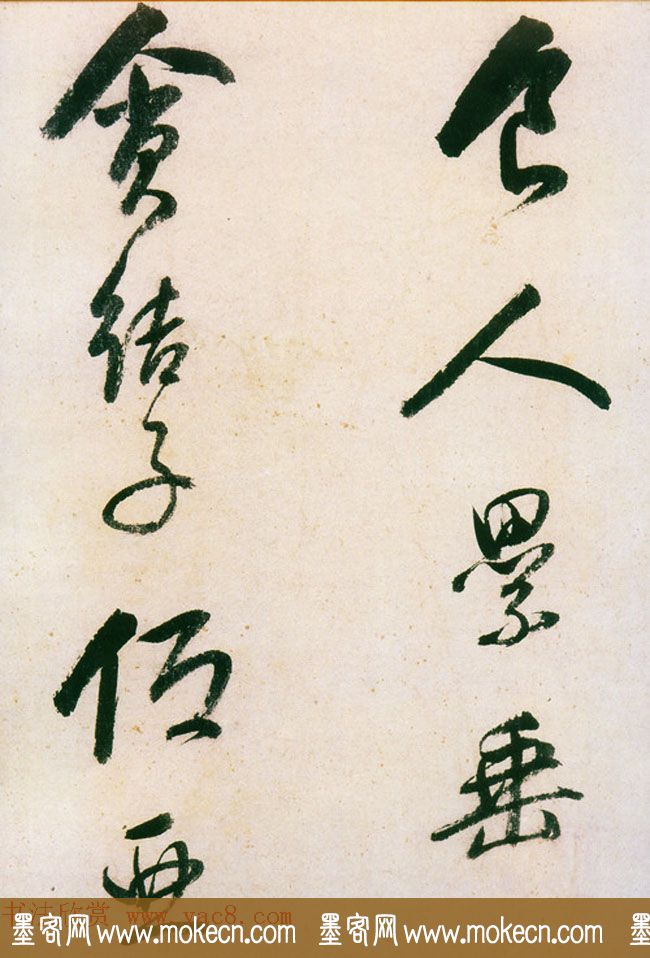 人累垂
貪結子
书法欣赏 www.yac8.com
墨客网 www.mokecn.com 墨客网 www.mokecn.com